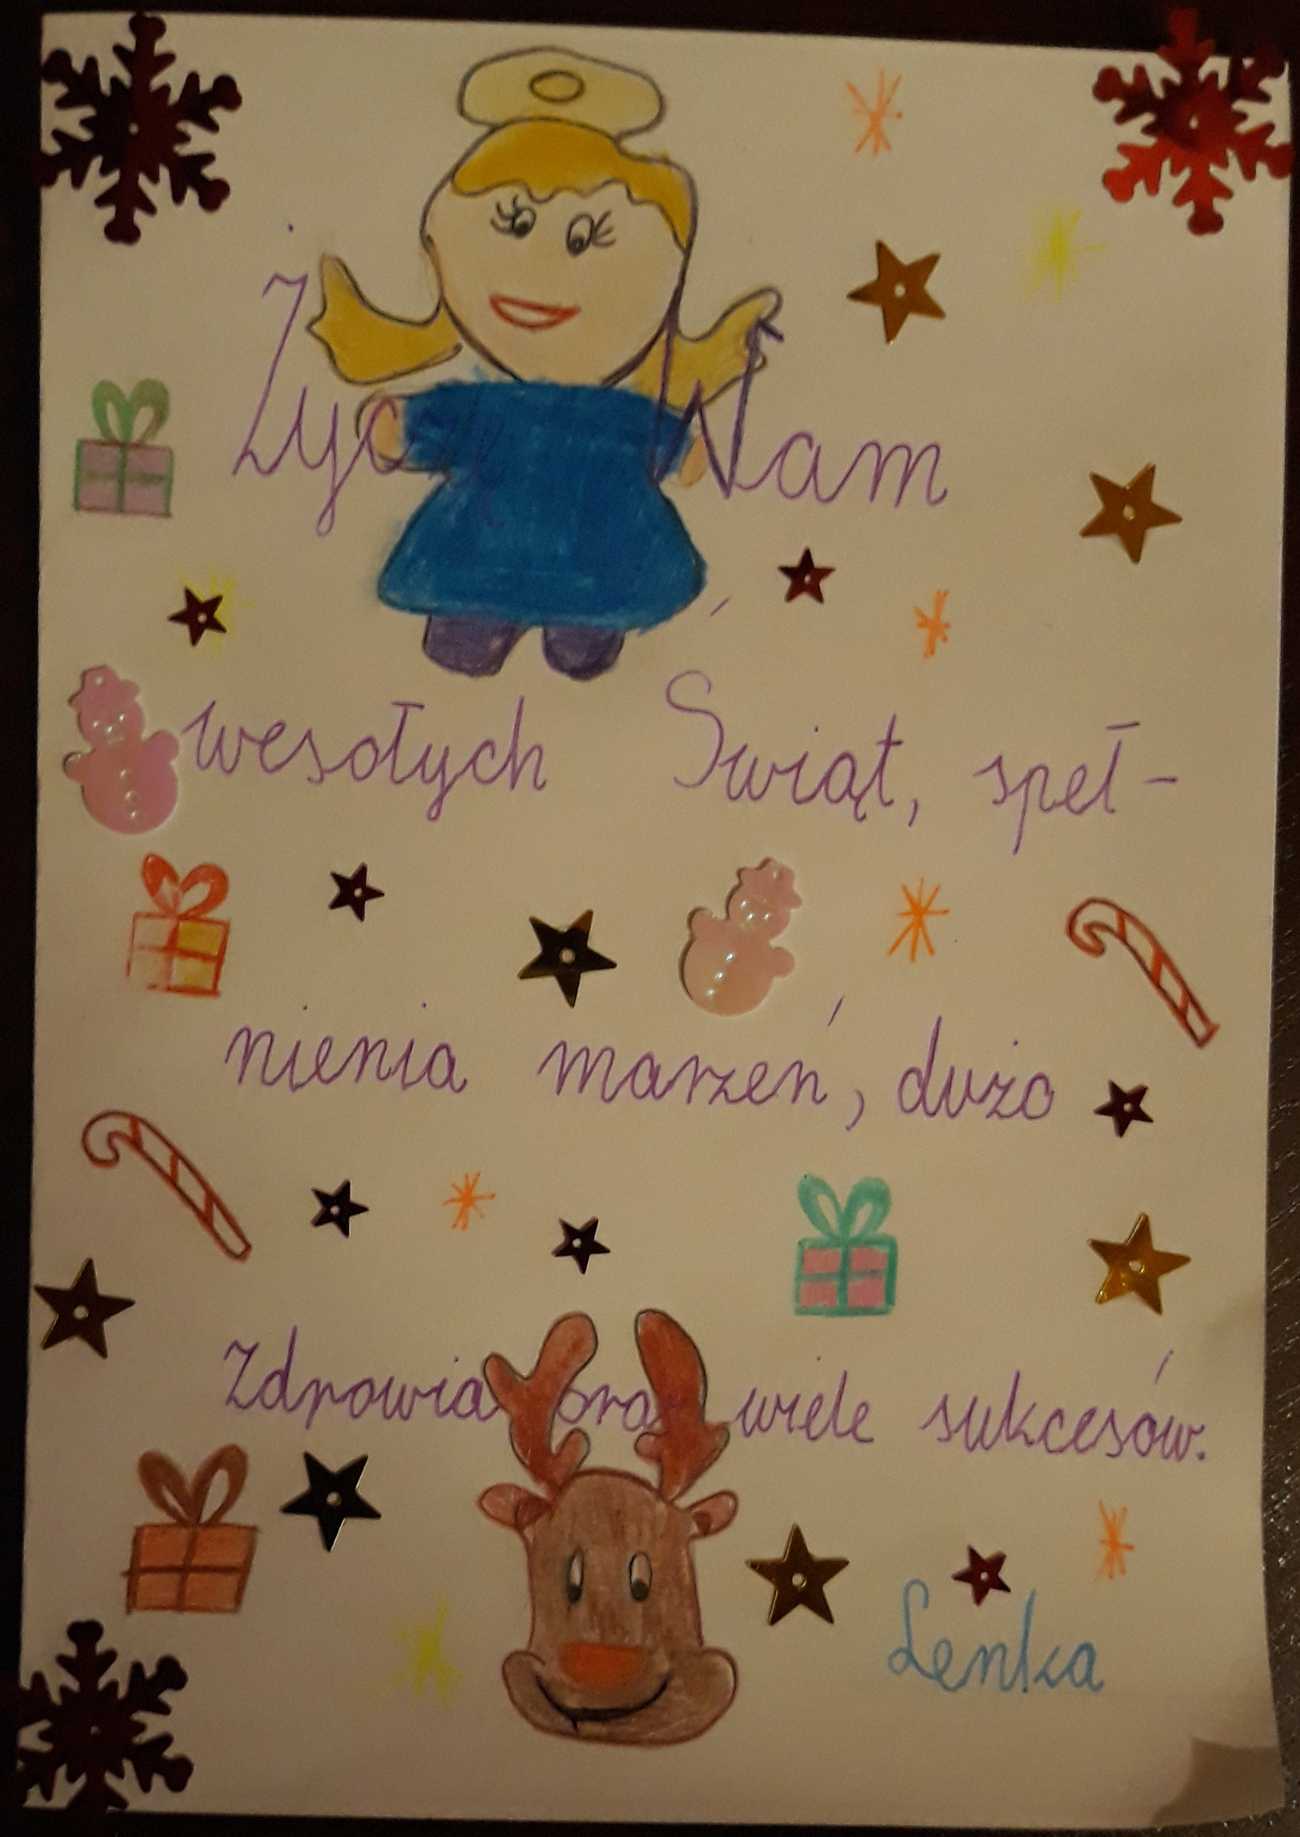 Życzę Wam
wesołych Świąt, speł-
nienia marzeń, dużo
zdrowia oraz wiele sukcesów.
Lenka